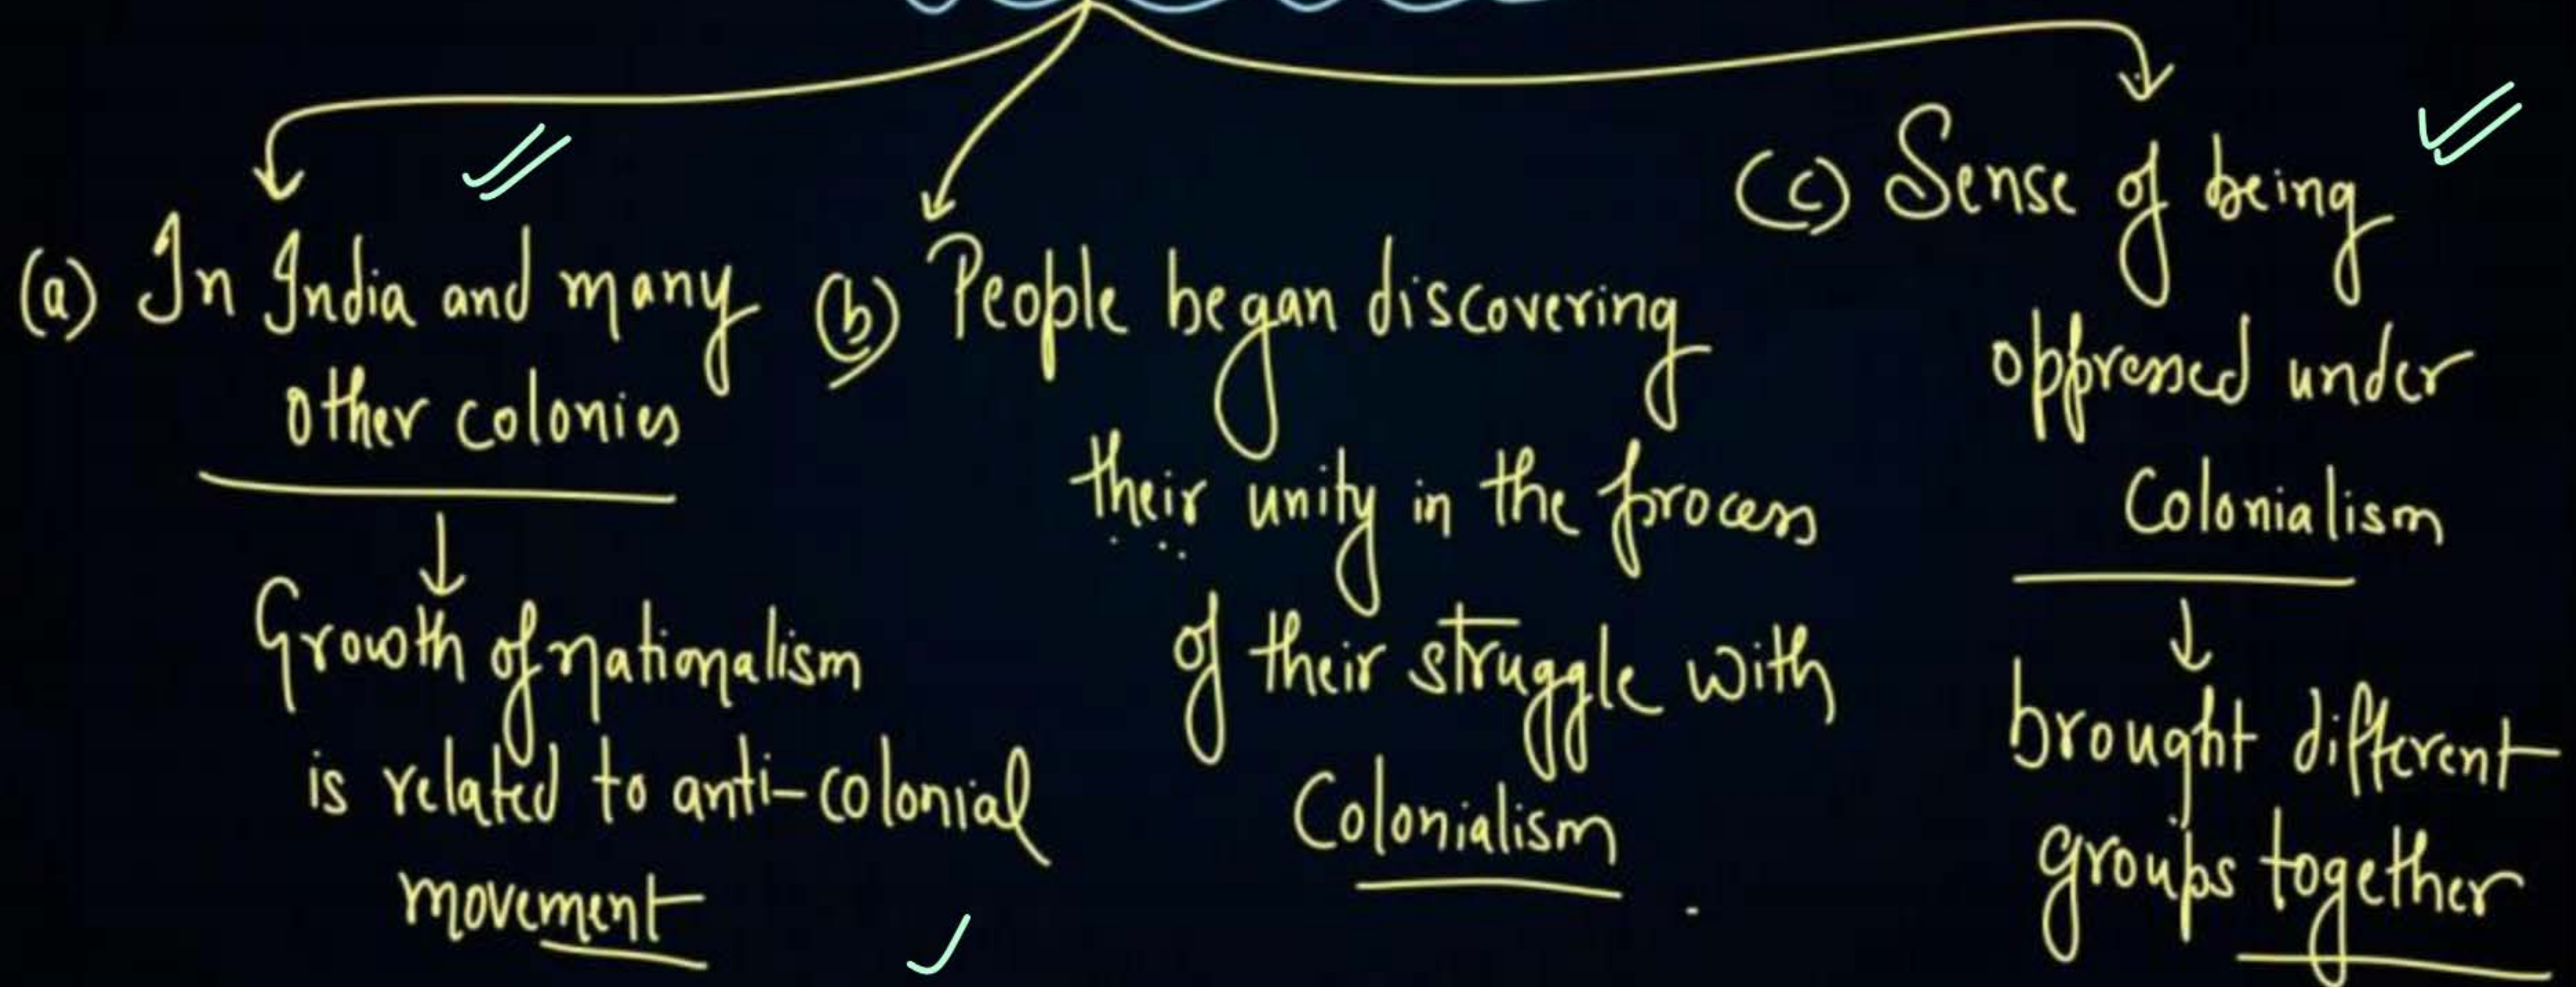 (a) In India and many
other colonies
Growth of nationalism
is related to anti-colonial
movement
(b) People began discovering
their unity in the process
of their struggle with
Colonialism
(c) Sense of being
oppressed under
Colonialism
brought different
groups together